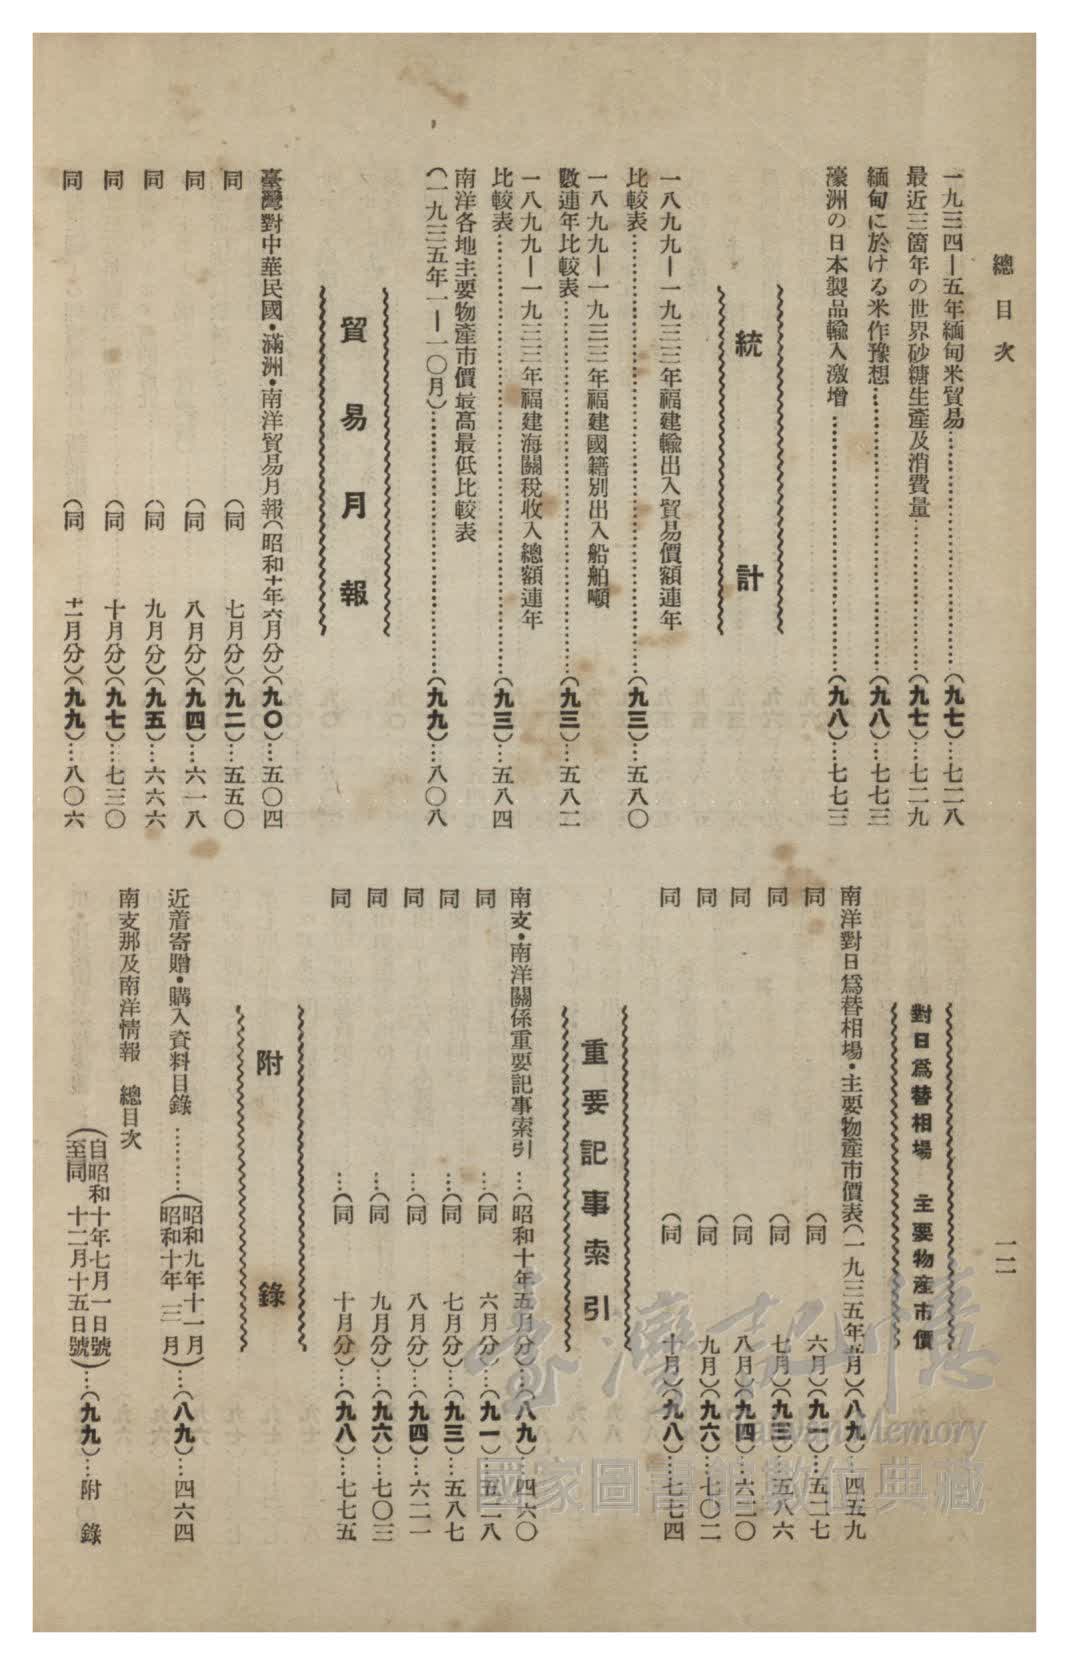 總目次
一二
一九三四—五年緬甸米貿易……(九七)…七二八
最近三箇年の世界砂糖生產及消費量……(九七)…七二九
緬甸に於ける米作豫想……(九八)…七七三
濠洲の日本製品輸入激增……(九八)…七七三
統計
一八九九—一九三三年福建輸出入貿易價額連年
比較表……(九三)…五八〇
一八九九—一九三三年福建國籍別出入船舶噸
數連年比較表……(九三)…五八二
一八九九—一九三三年福建海關稅收入總額連年
比較表……(九三)…五八四
南洋各地主要物產市價最高最低比較表
(一九三五年一—一〇月)……(九九)…八〇八
貿易月報
臺灣對中華民國・滿洲・南洋貿易月報(昭和十年六月分)(九〇)…五〇四
同 (同 七月分)(九二)…五五〇
同 (同 八月分)(九四)…六一八
同 (同 九月分)(九五)…六六六
同 (同 十月分)(九七)…七三〇
同 (同 十一月分)(九九)…八〇六
對日爲替相場 主要物產市價
南洋對日爲替相場・主要物產市價表(一九三五年五月)(八九)…四五九
同 (同 六月)(九一)…五二七
同 (同 七月)(九三)…五八六
同 (同 八月)(九四)…六二〇
同 (同 九月)(九六)…七〇二
同 (同 十月)(九八)…七七四
重要記事索引
南支・南洋關係重要記事索引…(昭和十年五月分)…(八九)…四六〇
同 …(同 六月分)…(九一)…五二八
同 …(同 七月分)…(九三)…五八七
同 …(同 八月分)…(九四)…六二一
同 …(同 九月分)…(九六)…七〇三
同 …(同 十月分)…(九八)…七七五
附錄
近着寄贈・購入資料目錄……(昭和九年十一月
昭和十年三月)…(八九)…四六四
南支那及南洋情報 總目次
(自昭和十年七月一日號
至同 十二月十五日號)…(九九)…附錄
臺灣記憶
Taiwan Memory
國家圖書館數位典藏